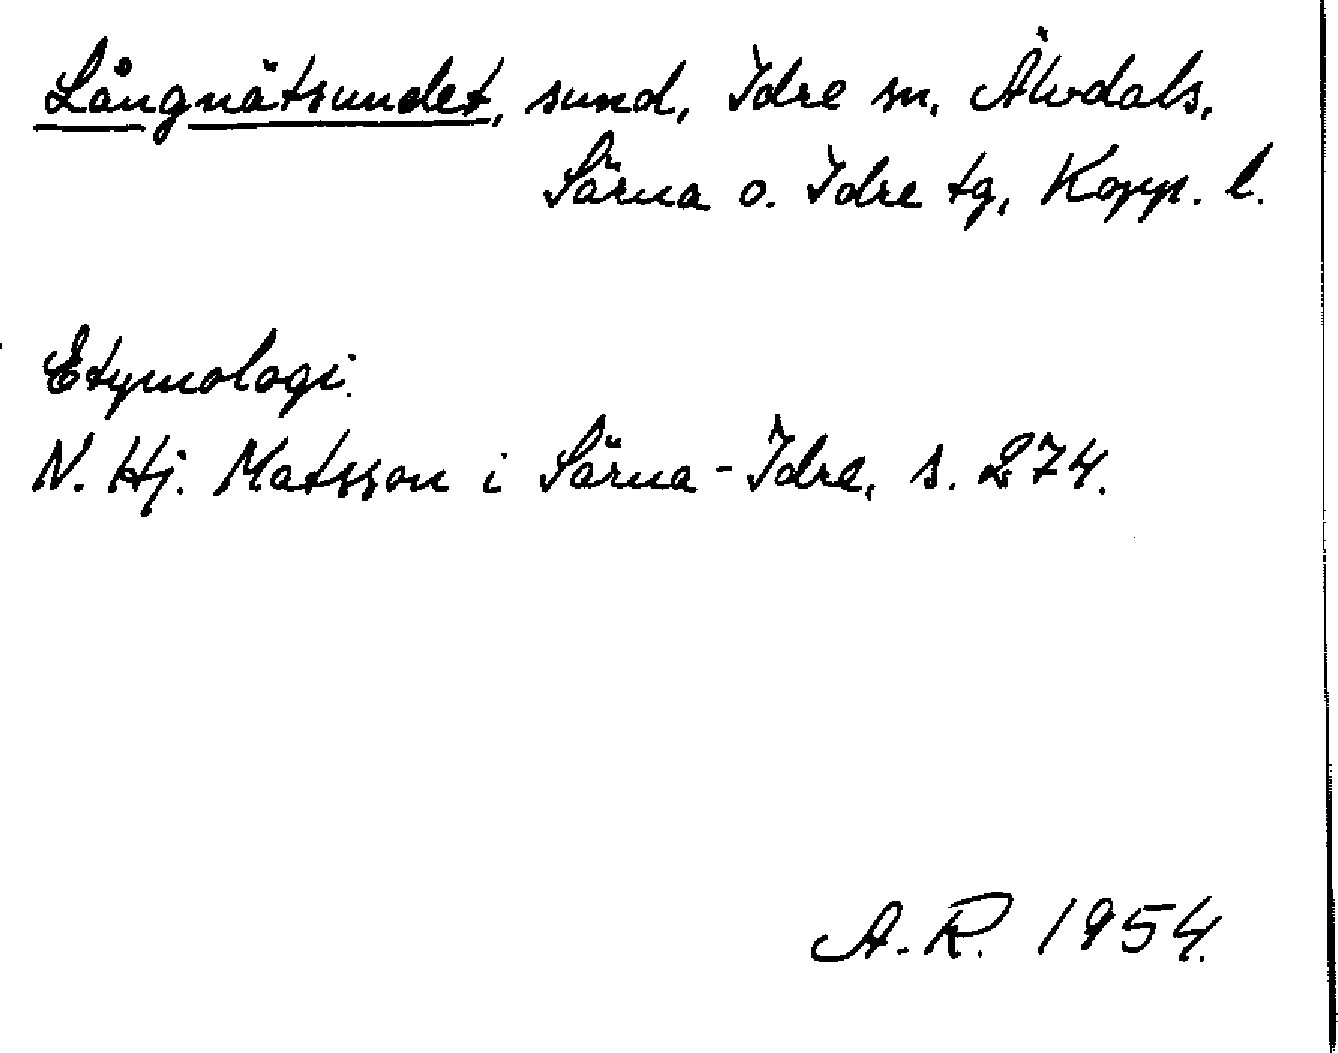 Långnätsundet, sund, Idre sn, Älvdals,
Särna o. Idre tg, Kopp. l.
Etymologi.
N. Hj. Matsson i Särna-Idre, s. 274.
A. R. 1954.